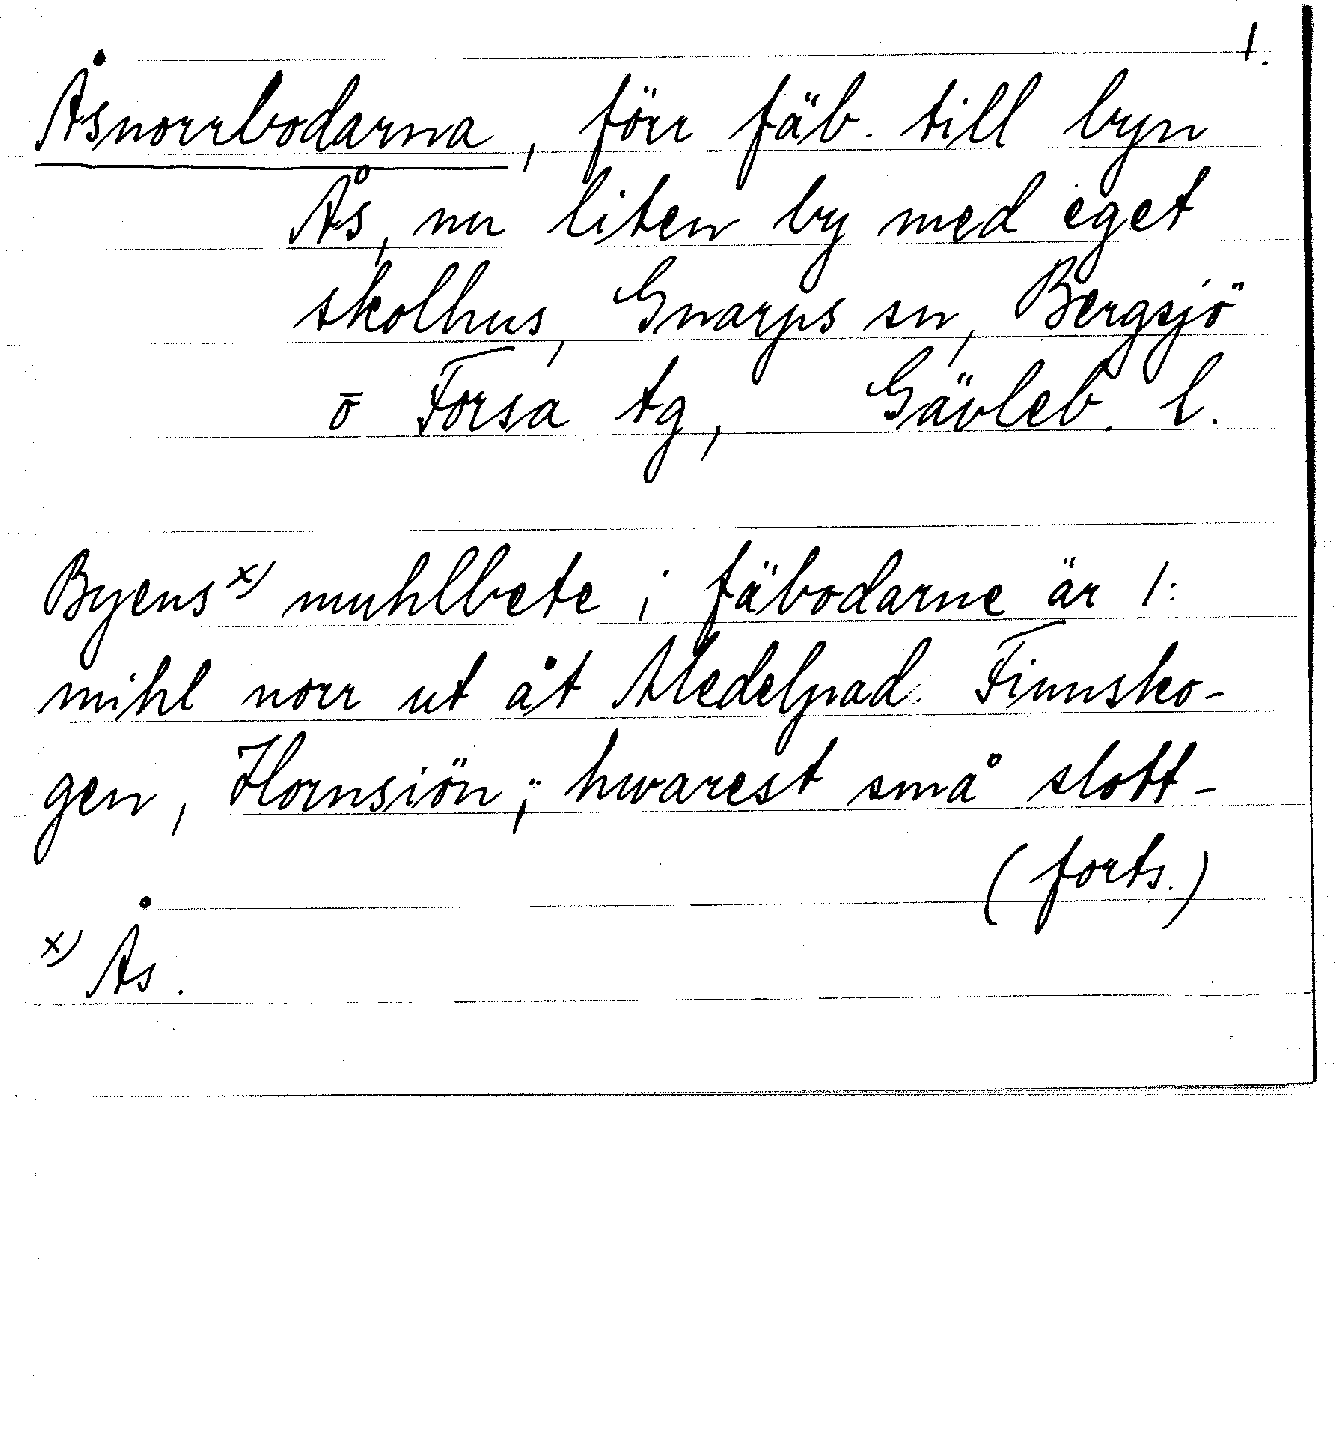 1.
Åsnorrbodarna, förr fäb. till byn
Ås, nu liten by med eget
skolhus, Gnarps sn, Bergsjö
o Forsa tg, Gävleb. l.
Byens x) muhlbete i fäbodarne är 1:
mihl norr ut åt Medelpad. Finnsko-
gen, Hornsiön; hwarest små slott-
(forts.)
x) Ås.